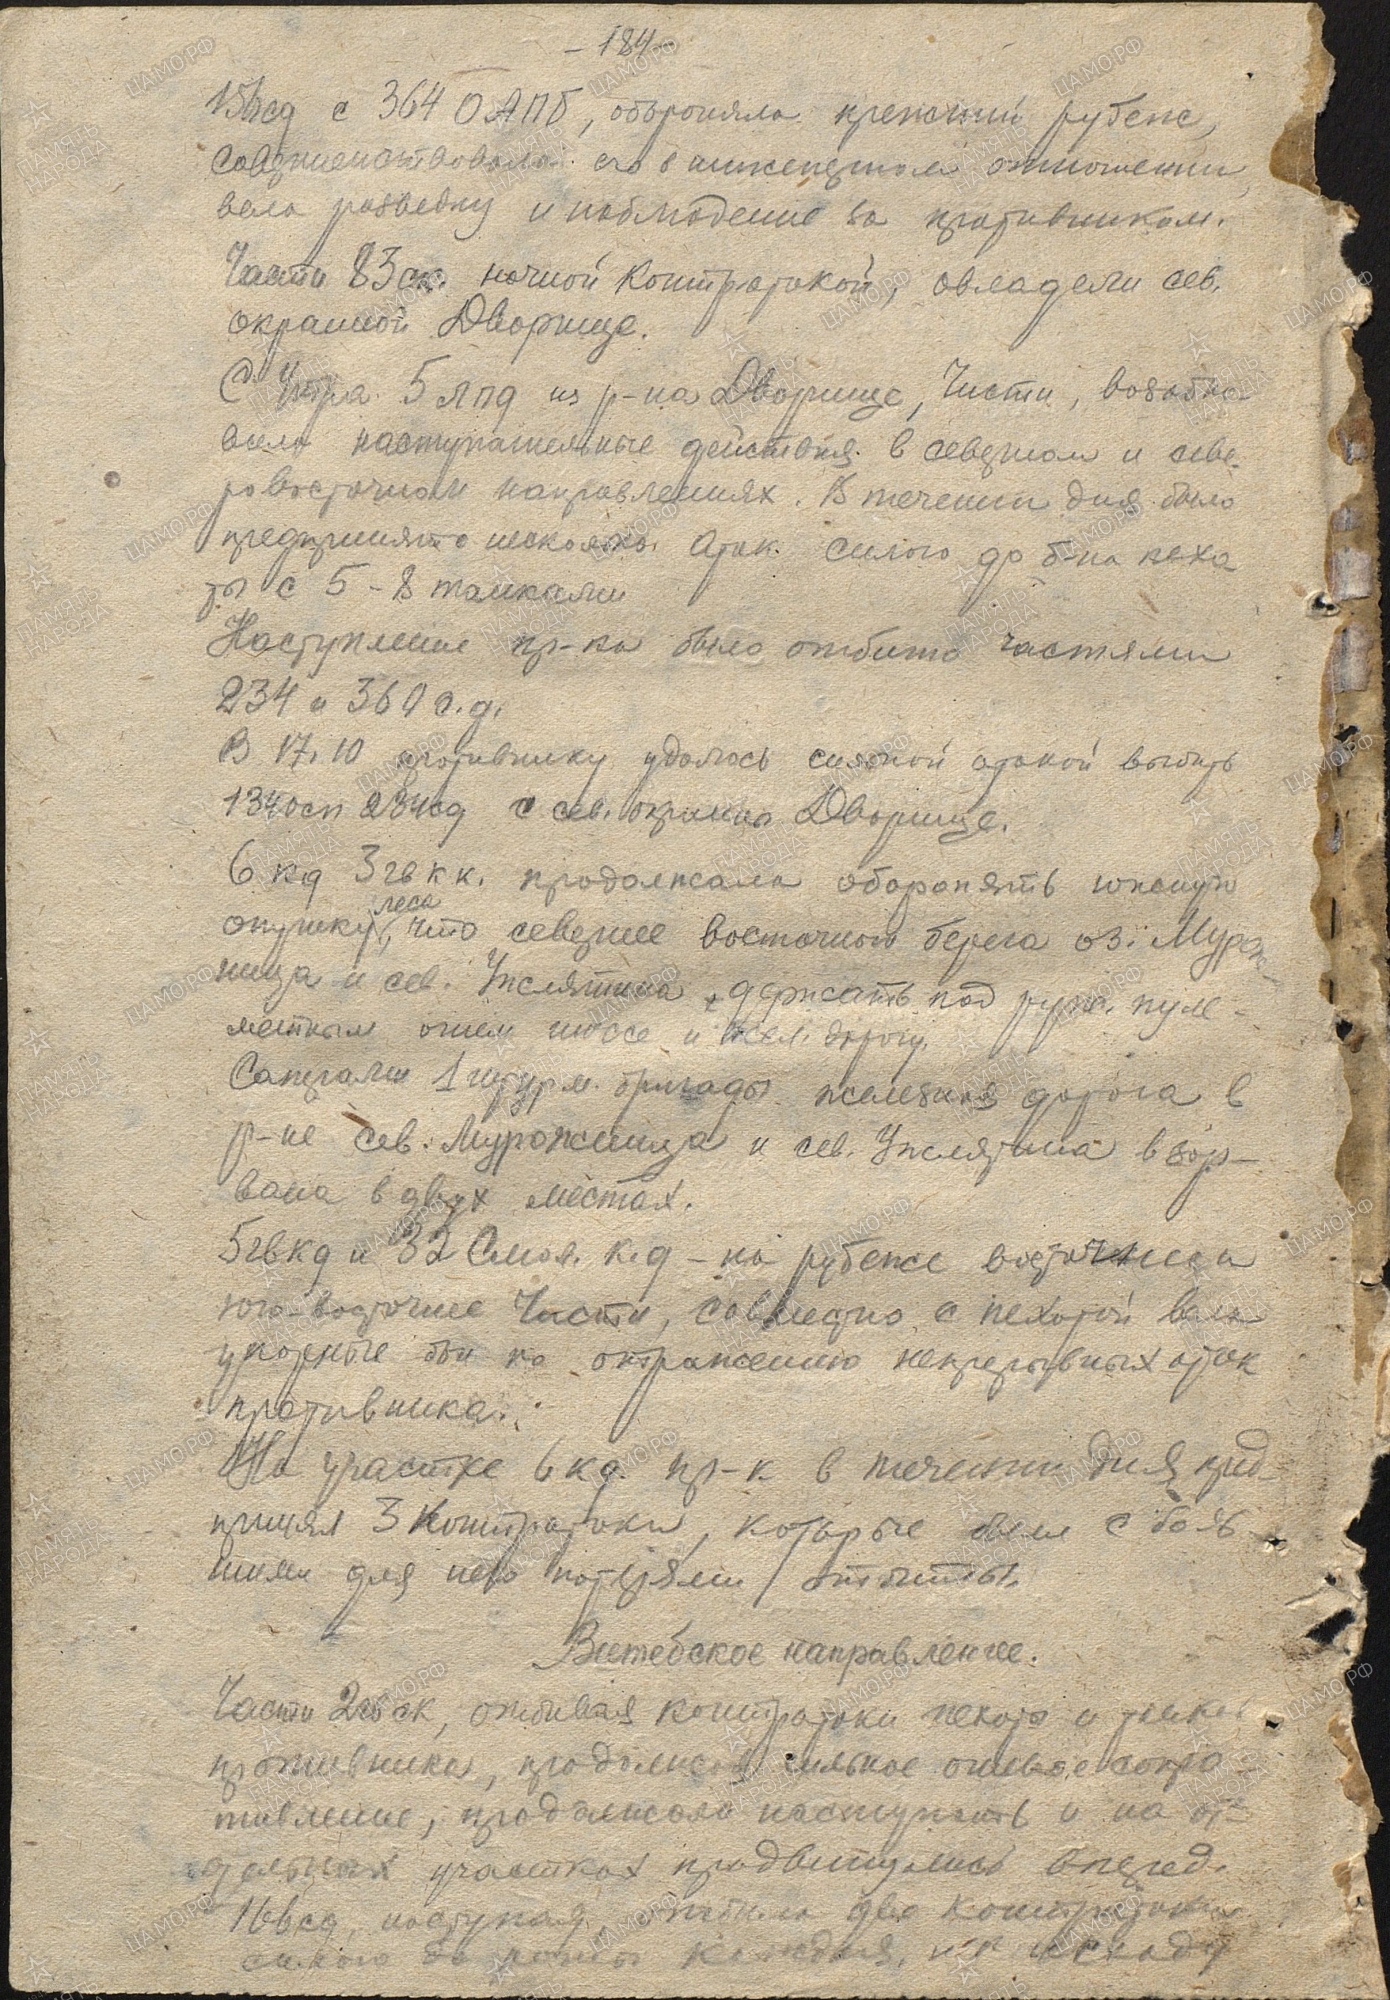 – 184 –
154сд с 364 ОАПБ, обороняла прежний рубеж,
совершенствовала его в инженерном отношении,
вела разведку и наблюдение за противником.
Части 83 ск. ночной контратакой, овладели сев.
окраиной Дворище.
С утра 5 лпд из р-на Дворище, Чисти, возобно
вила наступательные действия в северном и севе-
ровосточном направлениях. В течении дня было
предпринято несколько атак силою до б-на пехо
ты с 5-8 танками
Наступление пр-ка было отбито частями
234 и 360 с.д.
В 17.10 противнику удалось сильной атакой выбить
1340сп 234сд с сев. окраины Дворище.
6 кд 3 гв к к. продолжала оборонять южную
опушку леса, что севернее восточного берега оз. Мурож-
ница и сев. Ужлятина, держать под руж. пуле-
метным огнем шоссе и жел. дорогу.
Саперами 1 штурм. бригады железная дорога в
р-не сев. Мурожница и сев. Ужлятина взор-
вана в двух местах.
5гвкд и 32 Смол. к.д – на рубеже восточнее и
юго-восточнее Чисти, совместно с пехотой вели
упорные бои по отражению непрерывных атак
противника.
На участке 6 кд. пр-к в течении дня пред-
принял 3 контратаки, которые были с боль-
шими для него потерями отбиты.
Витебское направление.
Части 2гв ск, отбивая контратаки пехоты и танков
противника, сильное огневое сопро-
тивление, продолжали наступать и на от-
дельных участках продвинулись вперед.
16гв сд, наступая, отбила две контратаки
силою до роты каждая, и к исходу